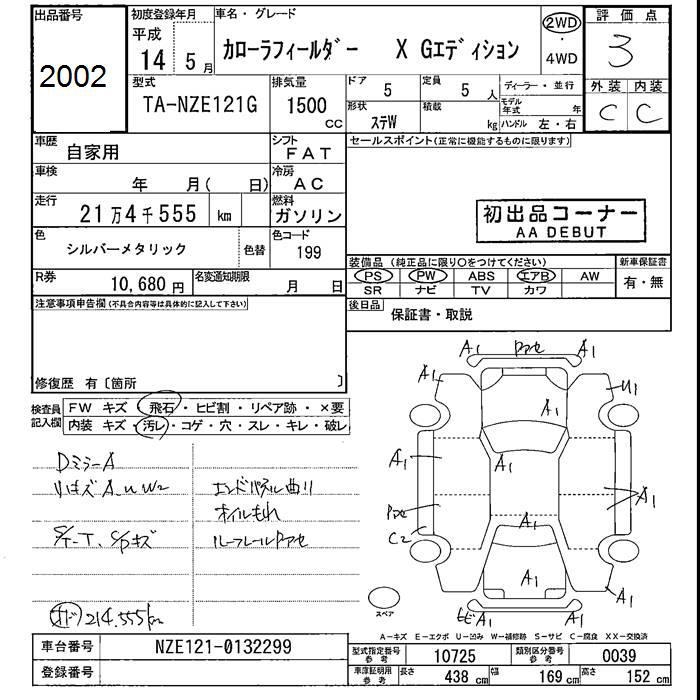 出品番号
2002
初度登録年月
平成
14 5月
車名・グレード
カローラフィールダー X Gエディション
2WD
・
4WD
評価点
3
型式
TA-NZE121G
排気量
1500 cc
ドア 5
定員 5 人
ディーラー・並行
形状 ステW
積載 kg
モデル年式 年
ハンドル 左・右
外装 内装
C C
車歴 自家用
シフト FAT
セールスポイント(正常に機能するものに限ります)
車検 年 月( 日)
冷房 AC
走行 21万4千555 km
燃料 ガソリン
初出品コーナー
AA DEBUT
色 シルバーメタリック 色替
色コード 199
装備品 (純正品に限り○をつけてください)
新車保証書
PS PW ABS エアB AW
SR ナビ TV カワ
有・無
R券 10,680 円
名変通知期限 月 日
後日品 保証書・取説
注意事項申告欄(不具合内容等は具体的に記入して下さい)
修復歴 有〔箇所 〕
検査員記入欄
FW キズ・飛石・ヒビ割・リペア跡・×要
内装 キズ・汚レ・コゲ・穴・スレ・キレ・破レ
DミラーA
リはズ A.U W2
エンドパネル曲リ
オイルもれ
S/T-T、C/Pキズ
ルーフレールPアセ
オド 214.555km
A1 Pアセ A1
A1 U1
A1
A1 A1
A1
Pアセ
C2
A1
A1
A1
モヒA1 A1
スペア
A-キズ E-エクボ U-凹み W-補修跡 S-サビ C-腐食 XX-交換済
車台番号 NZE121-0132299
登録番号
型式指定番号 参考 10725
類別区分番号 参考 0039
車庫証明用 参考 長さ 438 cm 幅 169 cm 高さ 152 cm